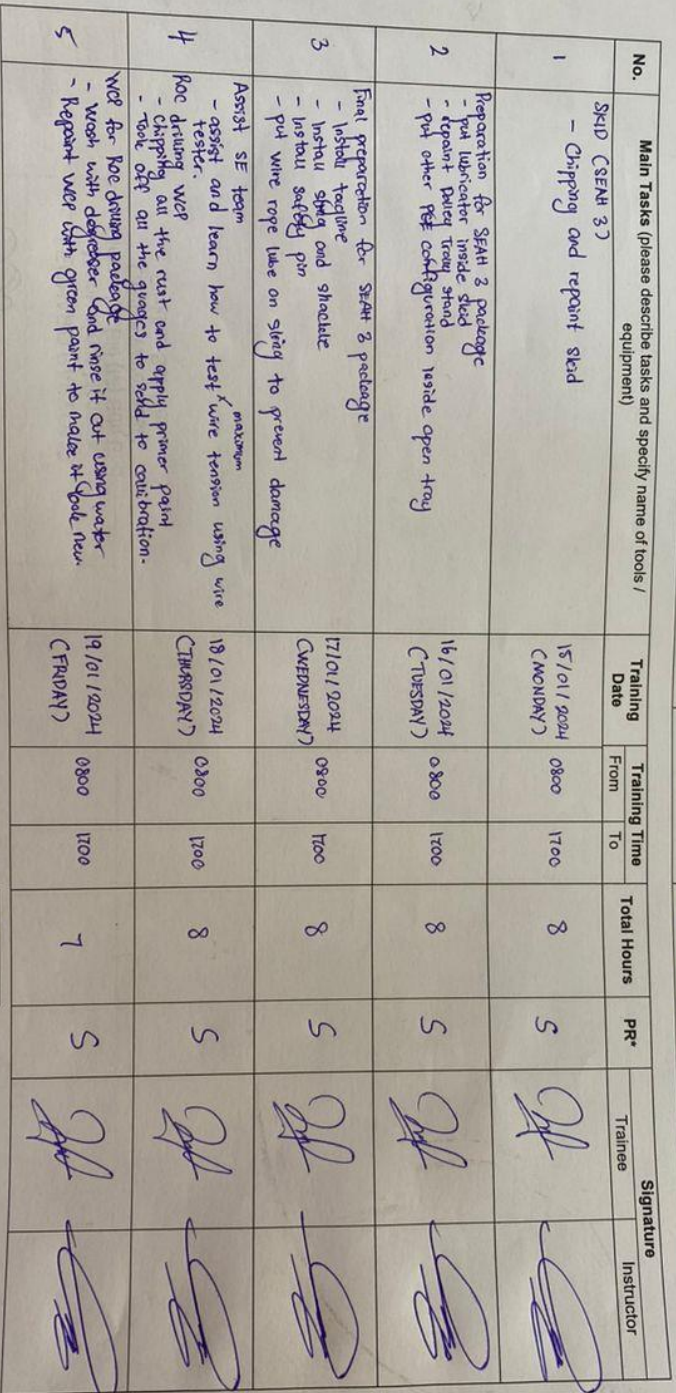 No.
Main Tasks (please describe tasks and specify name of tools /
equipment)
Training
Date
Training Time
From
To
Total Hours
PR*
Signature
Trainee
Instructor
1
SKID (SEAH 3)
- Chipping and repaint skid
15/01/2024
(MONDAY)
0800
1700
8
5
2
Preparation for SEAH 3 package
- put lubricator inside skid
- repaint Pulley Tray stand
- put other PCE configuration inside open tray
16/01/2024
(TUESDAY)
0800
1700
8
5
3
Final preparation for SEAH 3 package
- Install tagline
- Install sling and shackle
- Install safety pin
- put wire rope lube on sling to prevent damage
17/01/2024
(WEDNESDAY)
0800
1700
8
5
4
Assist SE team
- assist and learn how to test maximum wire tension using wire
tester.
Roc drilling WCP
- Chipping all the rust and apply primer paint
- Took off all the guages to send to calibration.
18/01/2024
(THURSDAY)
0800
1700
8
5
5
WCP for Roc drilling package
- Wash with degreaser and rinse it out using water
- Repaint WCP with green paint to make it look new.
19/01/2024
(FRIDAY)
0800
1700
7
5